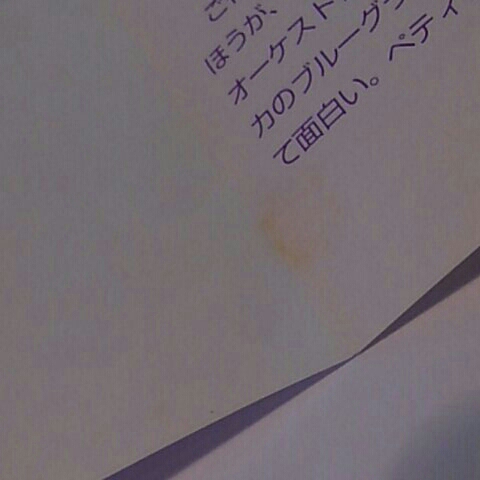 ほうが、
オーケスト
カのブルーグラ
て面白い。ペティ